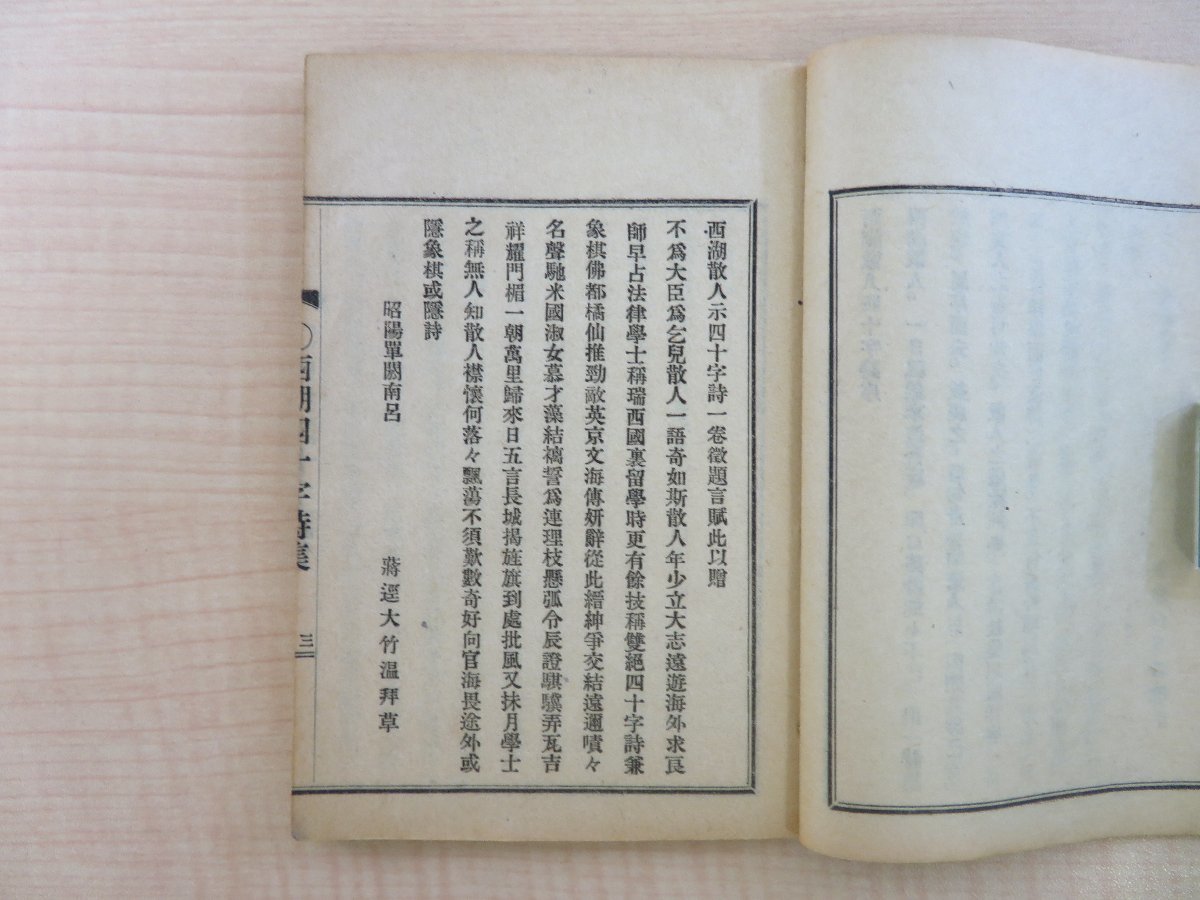 西湖散人示四十字詩一卷徵題言賦此以贈
不爲大臣爲乞兒散人一語奇如斯散人年少立大志遠遊海外求良
師早占法律學士稱瑞西國裏留學時更有餘技稱雙絕四十字詩兼
象棋佛都橘仙推勁敵英京文海傳妍辭從此縉紳爭交結遠邇嘖々
名聲馳米國淑女慕才藻結褵誓爲連理枝懸弧令辰證騏驥弄瓦吉
祥耀門楣一朝萬里歸來日五言長城揭旌旗到處批風又抹月學士
之稱無人知散人襟懷何落々飄蕩不須歎數奇好向官海畏途外或
隱象棋或隱詩
昭陽單閼南呂
蔣逕大竹溫拜草
〇西湖四十字詩集
三